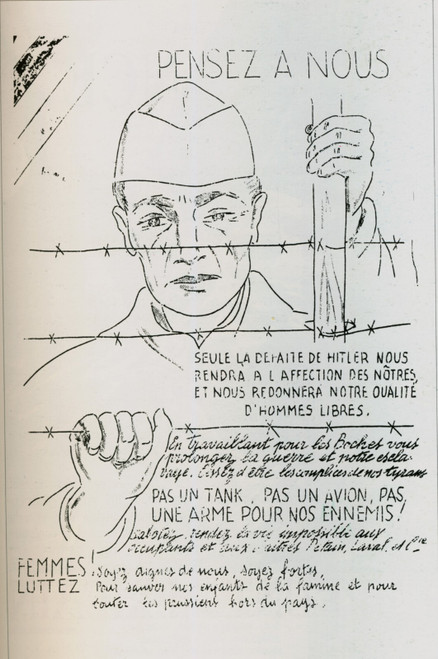 PENSEZ A NOUS
SEULE LA DEFAITE DE HITLER NOUS
RENDRA A L AFFECTION DES NÔTRES,
ET NOUS REDONNERA NOTRE QUALITÉ
D'HOMMES LIBRES.
En travaillant pour les Boches vous
prolongez la guerre et notre escla-
vage. Cessez d'être les complices de nos tyrans
PAS UN TANK, PAS UN AVION, PAS
UNE ARME POUR NOS ENNEMIS!
Sabotez, rendez la vie impossible aux
occupants et aux Pétain, Laval, et Cie
FEMMES!
LUTTEZ
Soyez dignes de nous, soyez fortes,
Pour sauver nos enfants de la famine et pour
bouter les prussiens hors du pays.